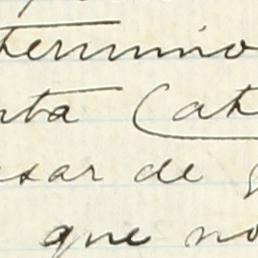 termino
nta Cat
sar de
que no